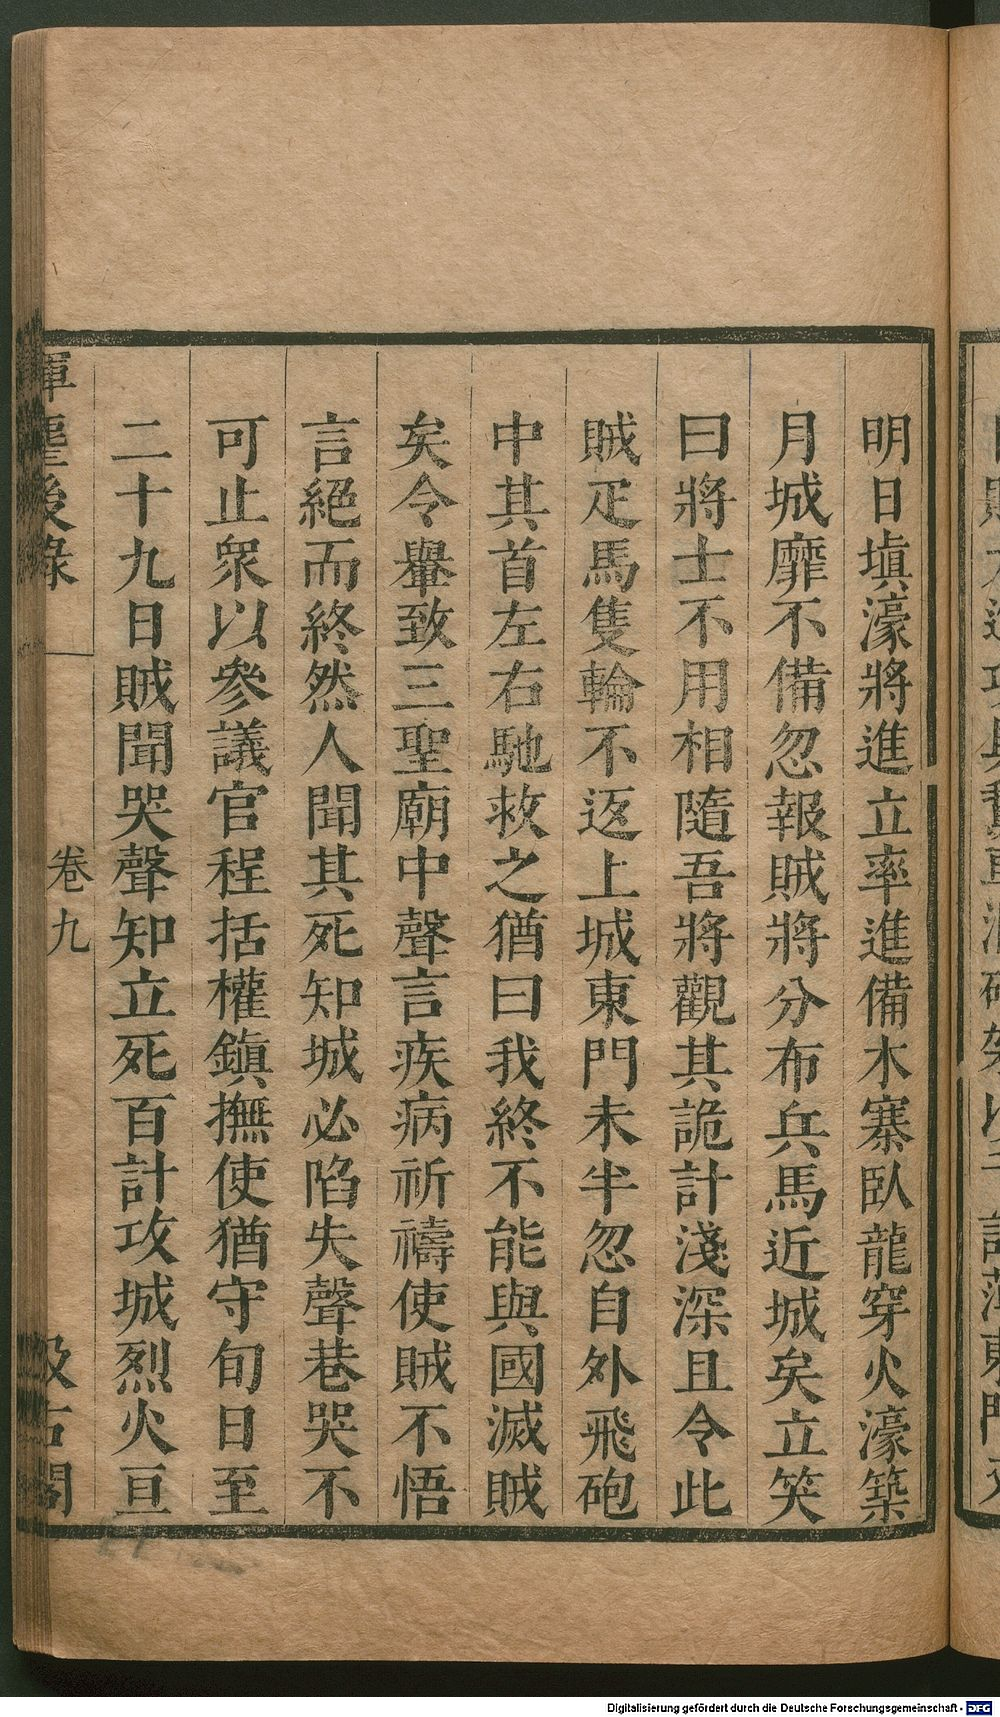 明日塡濠將進立率進備木寨臥龍穿火濠築
月城靡不備忽報賊將分布兵馬近城矣立笑
曰將士不用相隨吾將觀其詭計淺深且令此
賊疋馬隻輪不返上城東門未半忽自外飛砲
中其首左右馳救之猶曰我終不能與國滅賊
矣令轝致三聖廟中聲言疾病祈禱使賊不悟
言絕而終然人聞其死知城必陷失聲巷哭不
可止衆以參議官程括權鎮撫使猶守旬日至
二十九日賊聞哭聲知立死百計攻城烈火亘
後錄
卷九
古閣
Digitalisierung gefördert durch die Deutsche Forschungsgemeinschaft - DFG